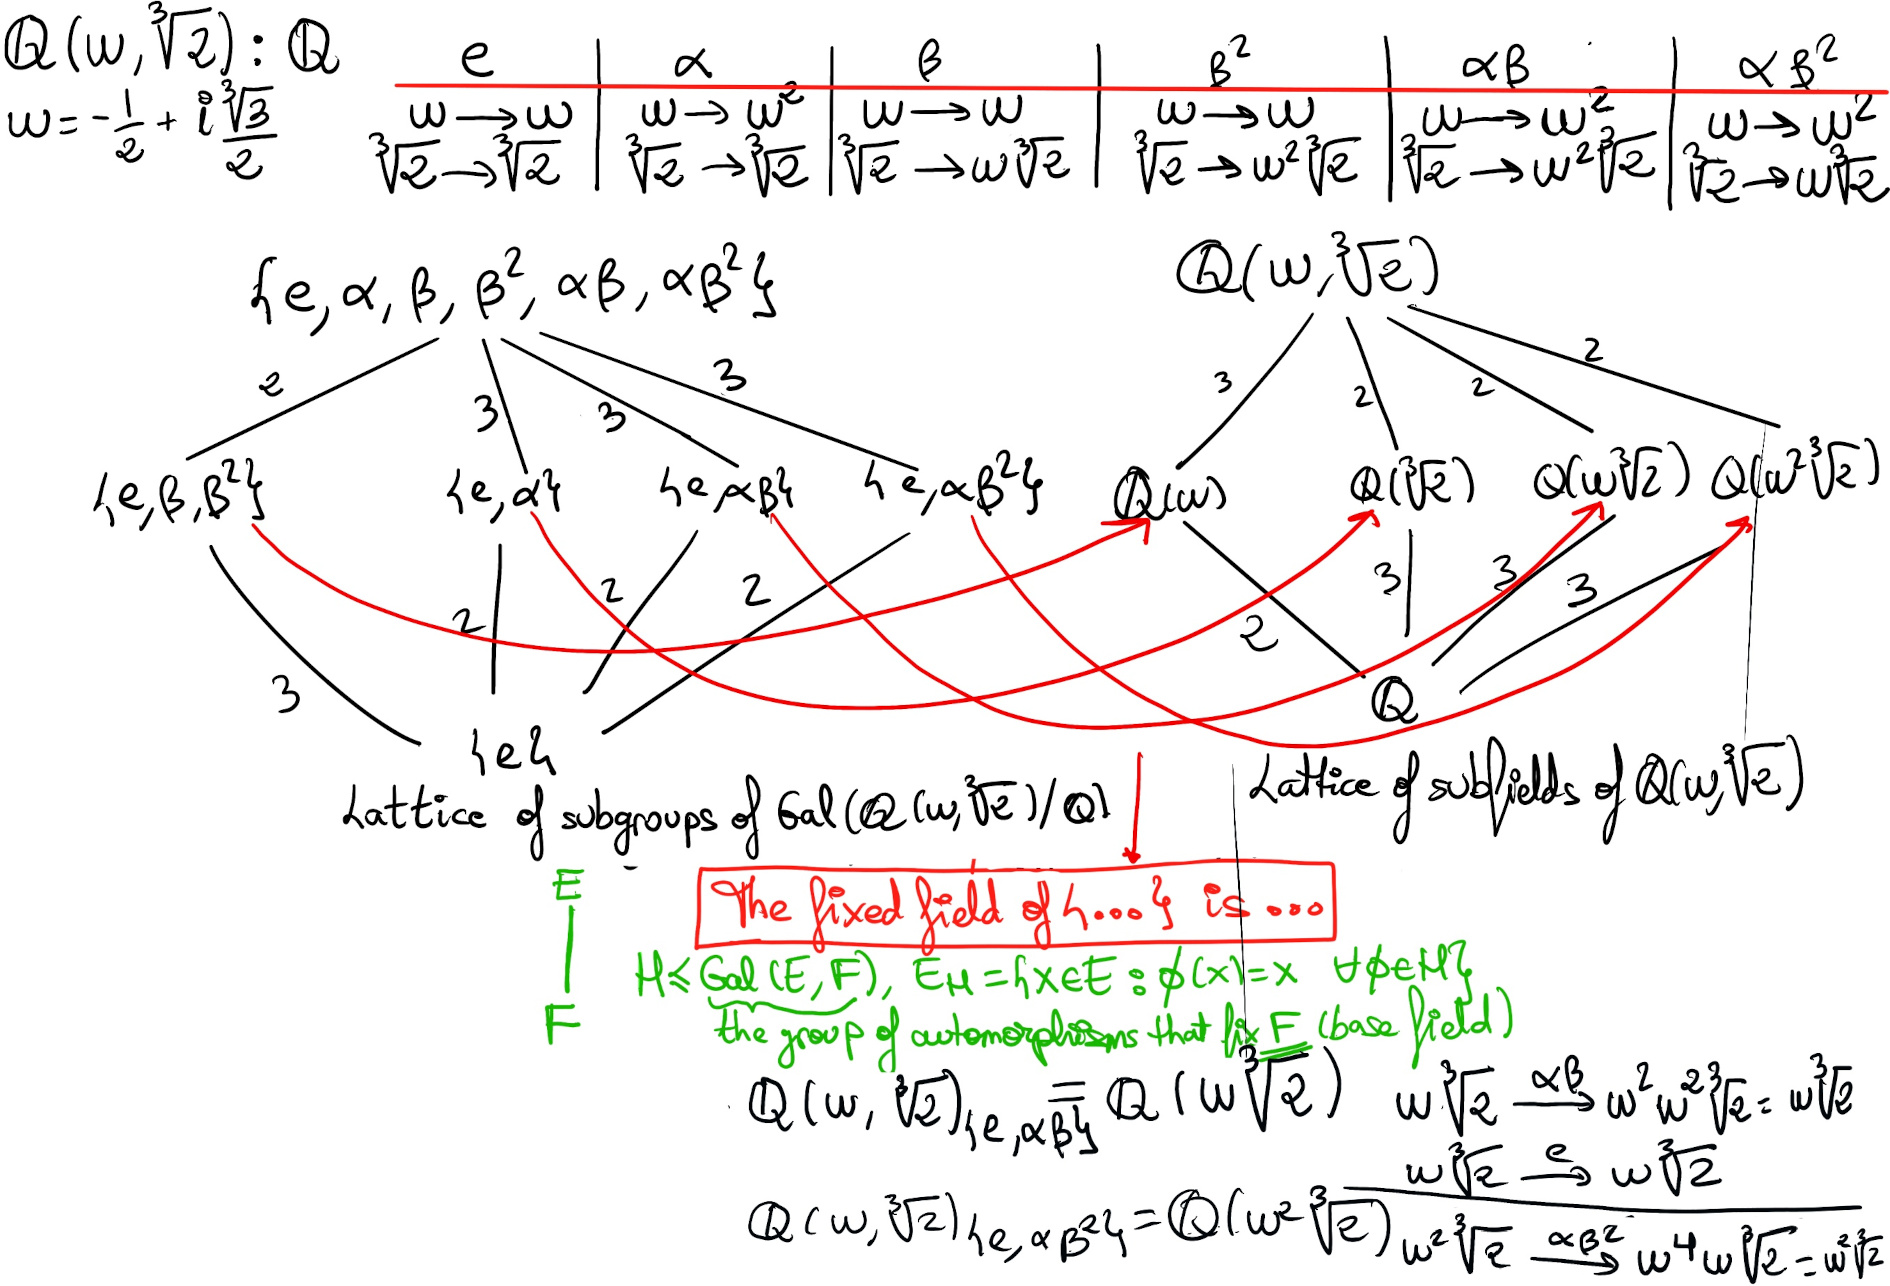 ℚ(ω, ∛2) : ℚ
ω = -1/2 + i∛3/2
e | α | β | β² | αβ | αβ²
ω → ω | ω → ω² | ω → ω | ω → ω | ω → ω² | ω → ω²
∛2 → ∛2 | ∛2 → ∛2 | ∛2 → ω∛2 | ∛2 → ω²∛2 | ∛2 → ω²∛2 | ∛2 → ω∛2
{e, α, β, β², αβ, αβ²}
2 3 3 3
{e, β, β²} {e, α} {e, αβ} {e, αβ²}
3 2 2 2
{e}
Lattice of subgroups of Gal(ℚ(ω, ∛2)/ℚ)
ℚ(ω, ∛2)
3 2 2 2
ℚ(ω) ℚ(∛2) ℚ(ω∛2) ℚ(ω²∛2)
2 3 3 3
ℚ
Lattice of subfields of ℚ(ω, ∛2)
The fixed field of {...} is ...
E
F
H ≤ Gal(E, F), E_H = {x ∈ E : ϕ(x) = x ∀ϕ ∈ H}
the group of automorphisms that fix F (base field)
ℚ(ω, ∛2)_{e, αβ} = ℚ(ω∛2)
ω∛2 —αβ→ ω² ω² ∛2 = ω∛2
ω∛2 —e→ ω∛2
ℚ(ω, ∛2)_{e, αβ²} = ℚ(ω²∛2)
ω²∛2 —αβ²→ ω⁴ ω∛2 = ω²∛2